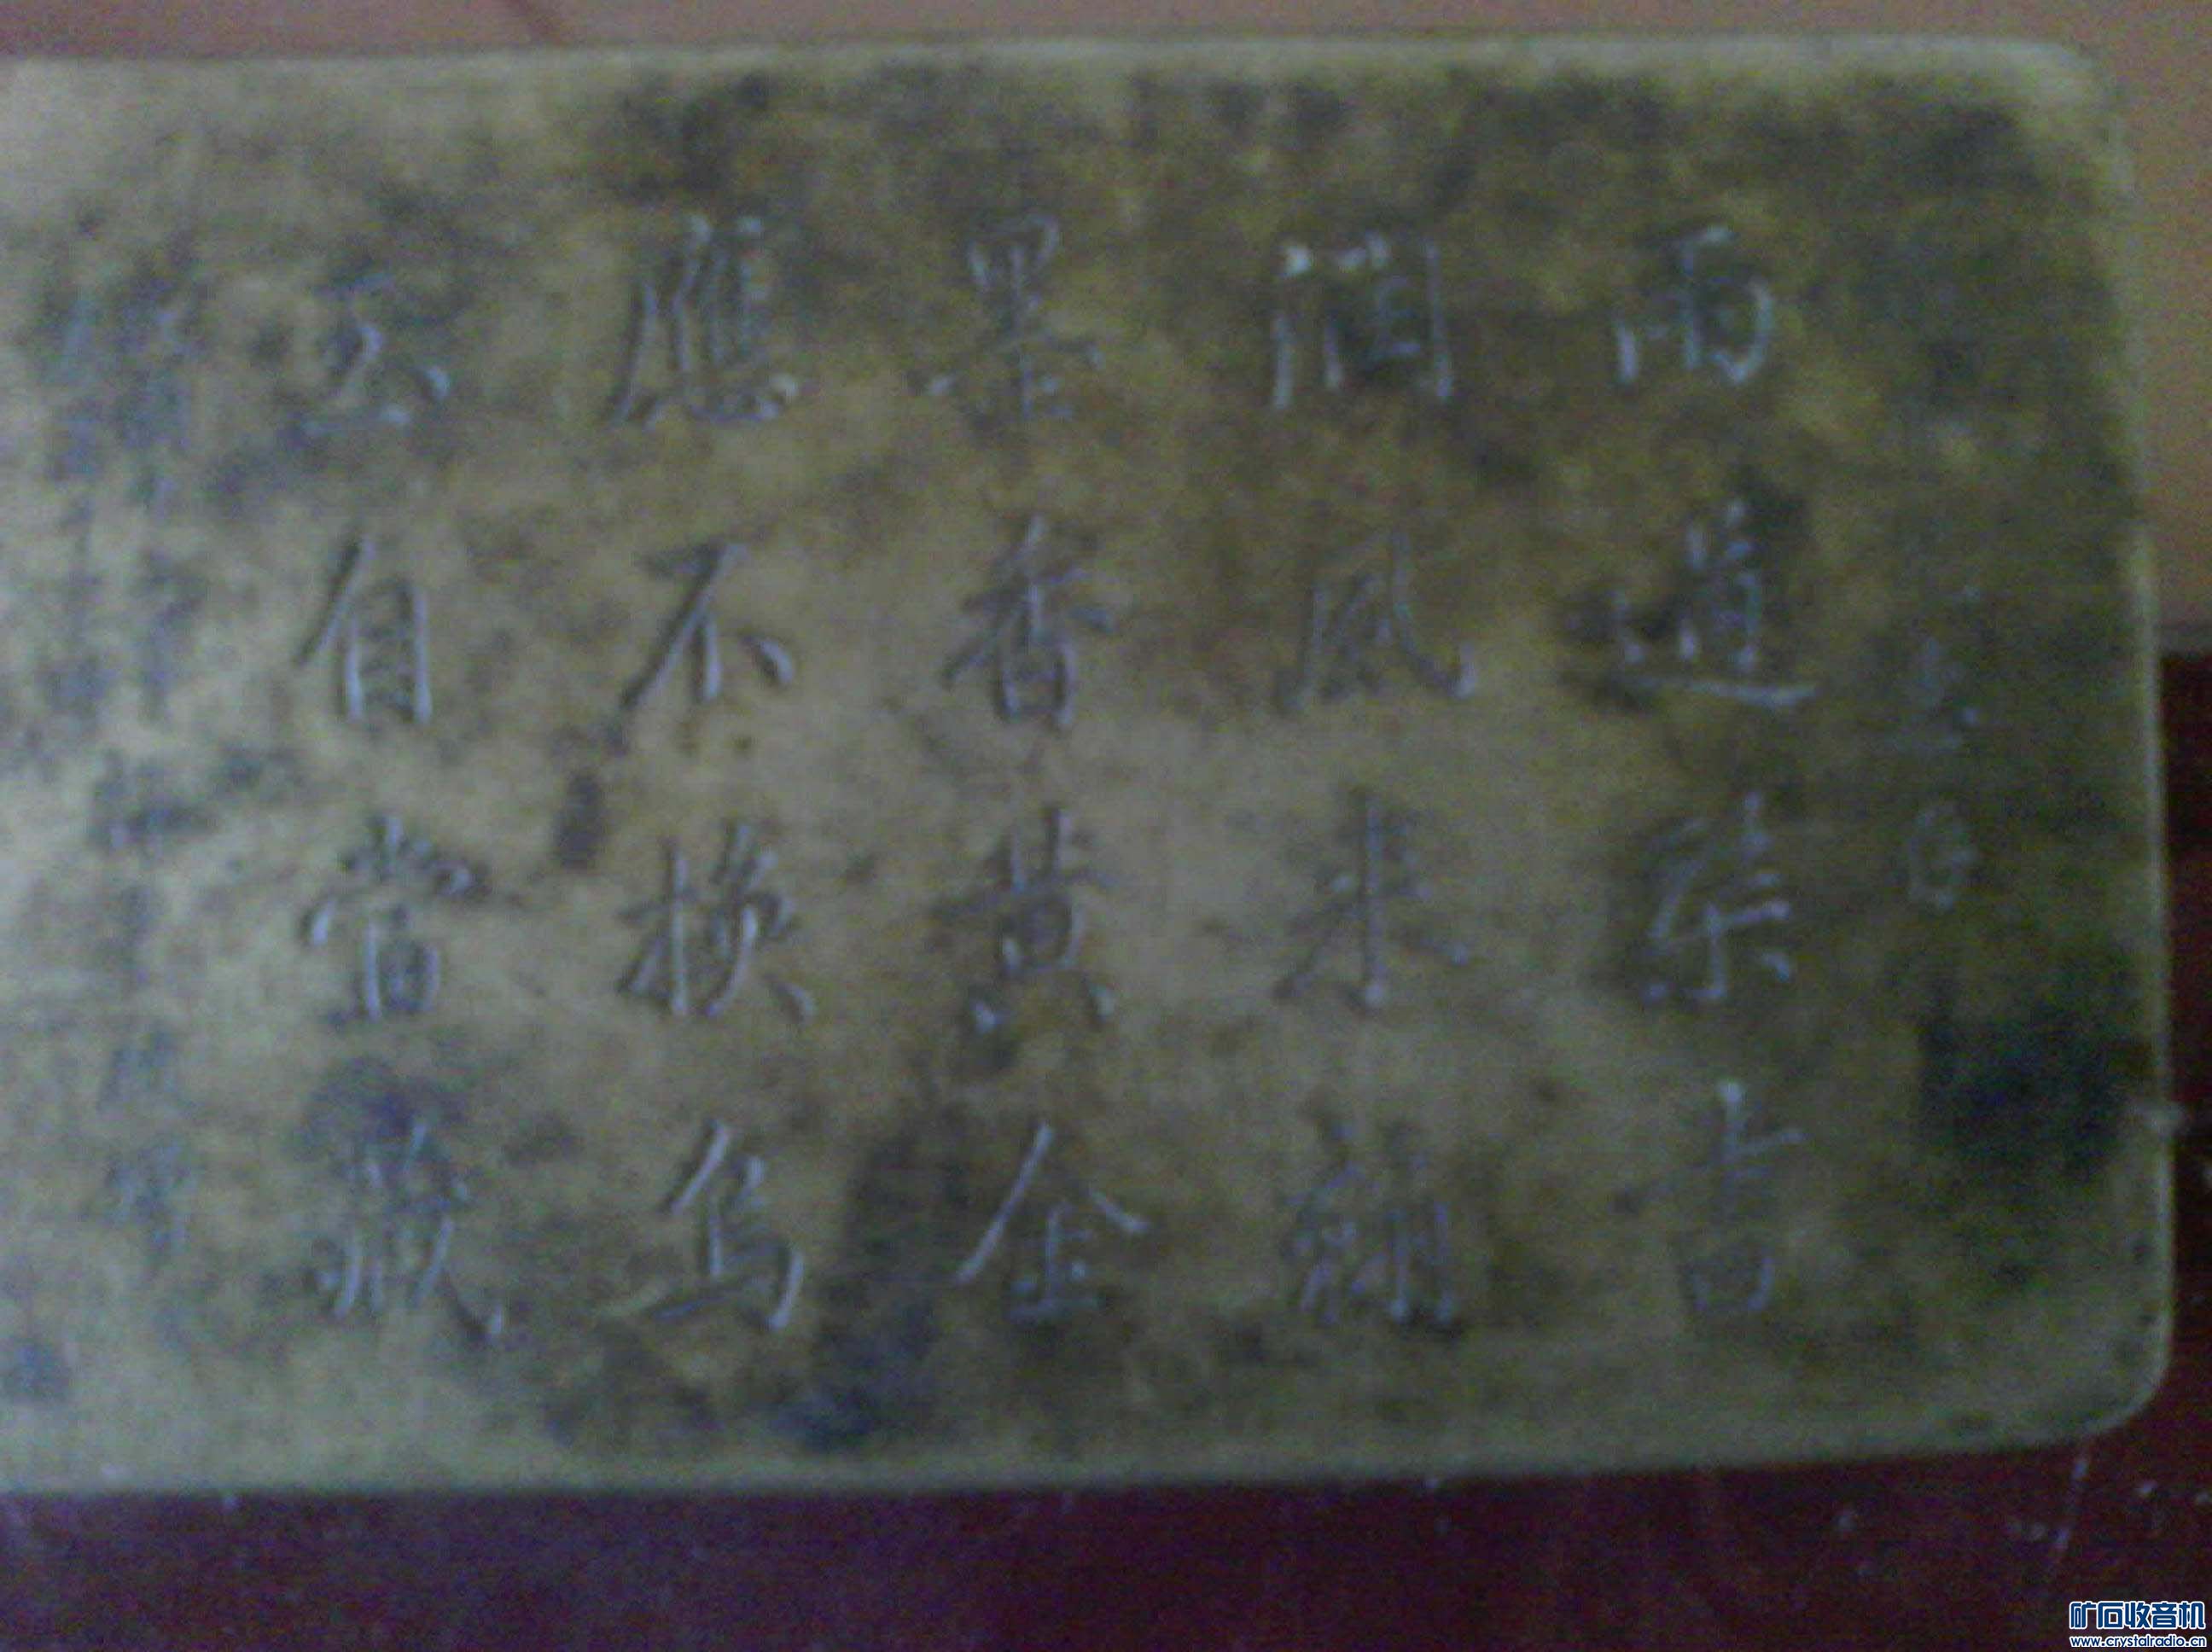 雨過琴書
潤風來翰
墨香黃金
應不換烏
玉自當藏
矿石收音机
www.crystalradio.cn